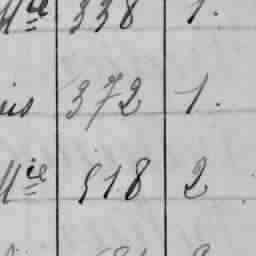 Mie 338 1.
is 372 1.
Mie 518 2